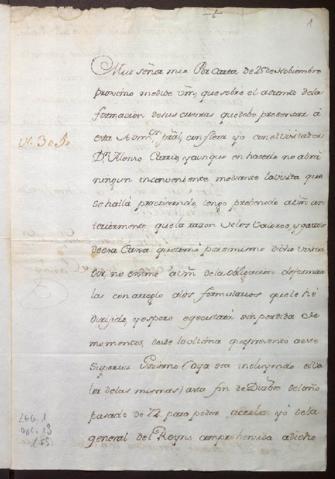 1
Muy señor mio. Por Carta de 25 de Noviembre
proximo me dice Vm, que sobre el asunto de la
formacion de sus cuentas que debe presentar á
esta Admon gral, confiera yo con el Visitador
Dn Alonso y aunque en hacerlo no abrá
ningun inconveniente mediante la visita que
se halla practicando, tengo prevenido a Vm an
teriormente que la razon de los Valores, y gastos
de esa Caxa que tomó dicho Visita
dor, no exime á Vm de la obligacion de formar
las con arreglo a los formularios que le hé
dirijido, y espero egecutará sin perdida de
momentos, desde la ultima que presentó a este
Superior Govierno (cuya era incluyendo el va
lor de las mismas) asta fin de Diziembre del año
pasado de 72 para poder acerla yó de la
general del Reyno comprehensiva a dicho
N. 3
Leg. 1
Doc. 13
(F5)